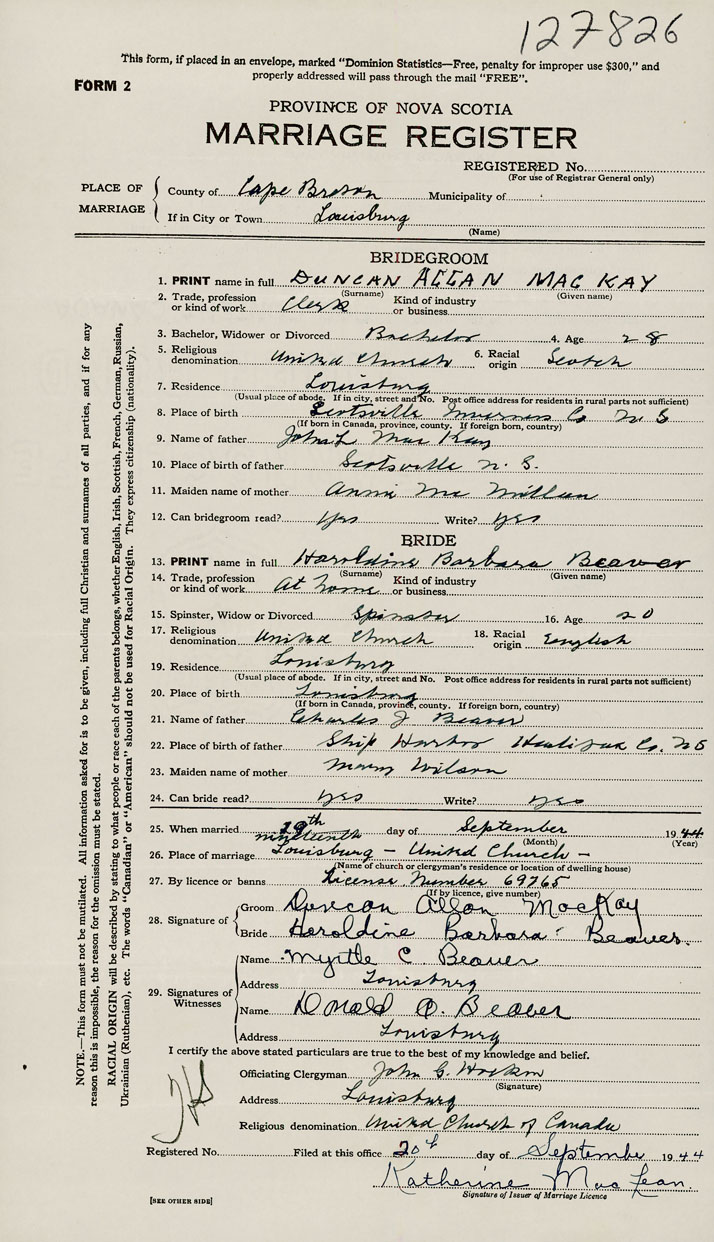 127826
This form, if placed in an envelope, marked “Dominion Statistics—Free, penalty for improper use $300,” and
properly addressed will pass through the mail “FREE”.
FORM 2
PROVINCE OF NOVA SCOTIA
MARRIAGE REGISTER
REGISTERED No.
(For use of Registrar General only)
PLACE OF MARRIAGE
County of Cape Breton Municipality of
If in City or Town Louisburg
(Name)
BRIDEGROOM
1. PRINT name in full DUNCAN ALLAN MAC KAY
(Surname) (Given name)
2. Trade, profession or kind of work Clerk Kind of industry or business
3. Bachelor, Widower or Divorced Bachelor 4. Age 28
5. Religious denomination United Church 6. Racial origin Scotch
7. Residence Louisburg
(Usual place of abode. If in city, street and No. Post office address for residents in rural parts not sufficient)
8. Place of birth Scotsville Inverness Co N S
(If born in Canada, province, county. If foreign born, country)
9. Name of father John L Mac Kay
10. Place of birth of father Scotsville N. S.
11. Maiden name of mother Annie Mc Millan
12. Can bridegroom read? yes Write? yes
BRIDE
13. PRINT name in full Haroldine Barbara Beaver
(Surname) (Given name)
14. Trade, profession or kind of work At home Kind of industry or business
15. Spinster, Widow or Divorced Spinster 16. Age 20
17. Religious denomination United Church 18. Racial origin English
19. Residence Louisburg
(Usual place of abode. If in city, street and No. Post office address for residents in rural parts not sufficient)
20. Place of birth Louisburg
(If born in Canada, province, county. If foreign born, country)
21. Name of father Charles J Beaver
22. Place of birth of father Ship Harbor Halifax Co. NS
23. Maiden name of mother Mary Wilson
24. Can bride read? yes Write? yes
25. When married 19th nineteenth day of September 1944
(Month) (Year)
26. Place of marriage Louisburg – United Church –
(Name of church or clergyman's residence or location of dwelling house)
27. By licence or banns License Number 69765
(If by licence, give number)
28. Signature of
Groom Duncan Allan MacKay
Bride Haroldine Barbara Beaver.
29. Signatures of Witnesses
Name Myrtle C. Beaver
Address Louisburg
Name Donald O. Beaver
Address Louisburg
I certify the above stated particulars are true to the best of my knowledge and belief.
Officiating Clergyman John G.
(Signature)
Address Louisburg
Religious denomination United Church of Canada
Registered No. Filed at this office 20th day of September 1944
Katherine MacLean.
Signature of Issuer of Marriage Licence
[SEE OTHER SIDE]
NOTE.—This form must not be mutilated. All information asked for is to be given, including full Christian and surnames of all parties, and if for any
reason this is impossible, the reason for the omission must be stated.
RACIAL ORIGIN will be described by stating to what people or race each of the parents belongs, whether English, Irish, Scottish, French, German, Russian,
Ukrainian (Ruthenian), etc. The words “Canadian” or “American” should not be used for Racial Origin. They express citizenship (nationality).